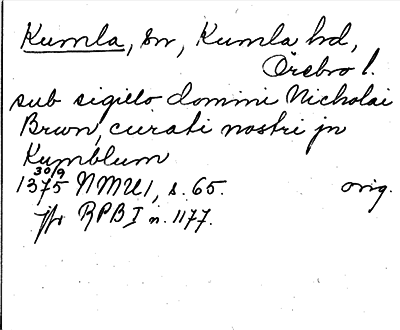 Kumla, sn, Kumla hd,
Örebro l.
sub sigillo domini Nicholai
Brwn, curati nostri jn
Kumblum
30/9
1375 NMU1, s. 65. orig.
jfr RPB I n. 1177.